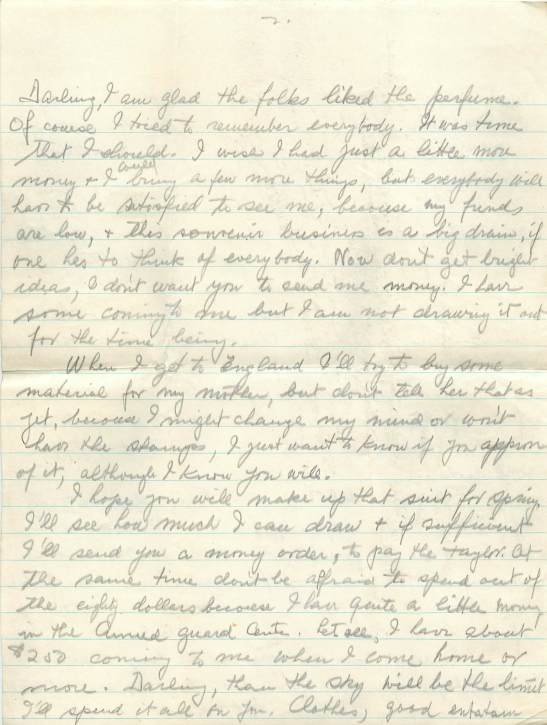 2.
Darling, I am glad the folks liked the perfume.
Of course I tried to remember everybody. It was time
that I should. I wise I had just a little more
money + I could bring a few more things, but everybody will
have to be satisfied to see me, because my funds
are low, + this souvenir business is a big drain, if
one has to think of everybody. Now don't get bright
ideas, I don't want you to send me money. I have
some coming to me but I am not drawing it out
for the time being.
When I get to England I'll try to buy some
material for my mother, but don't tell her that as
yet, because I might change my mind or won't
have the stamps, I just want to know if you approve
of it, although I know you will.
I hope you will make up that suit for spring.
I'll see how much I can draw + if sufficient
I'll send you a money order, to pay the taylor. At
the same time don't be affraid to spend out of
the eighty dollars because I have quite a little money
in the Armed guard Center. Let see, I have about
$250 coming to me when I come home or
more. Darling, than the sky will be the limit
I'll spend it all on you. Clothes, good entertain